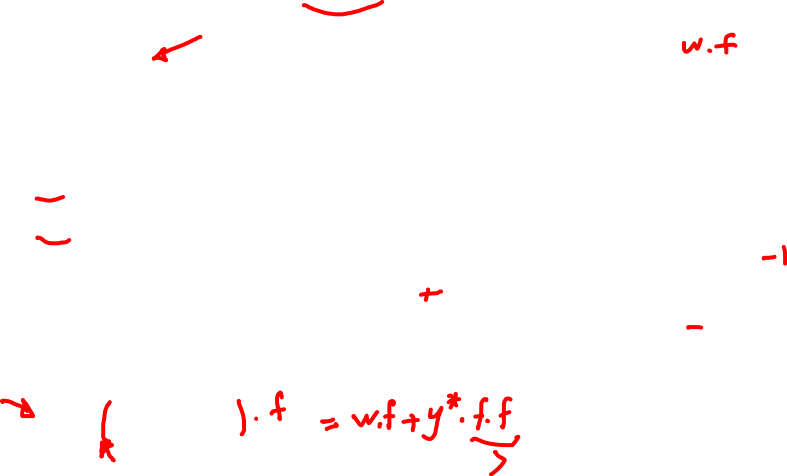 w.f
-1
+
-
( ) . f = w.f + y* . f.f